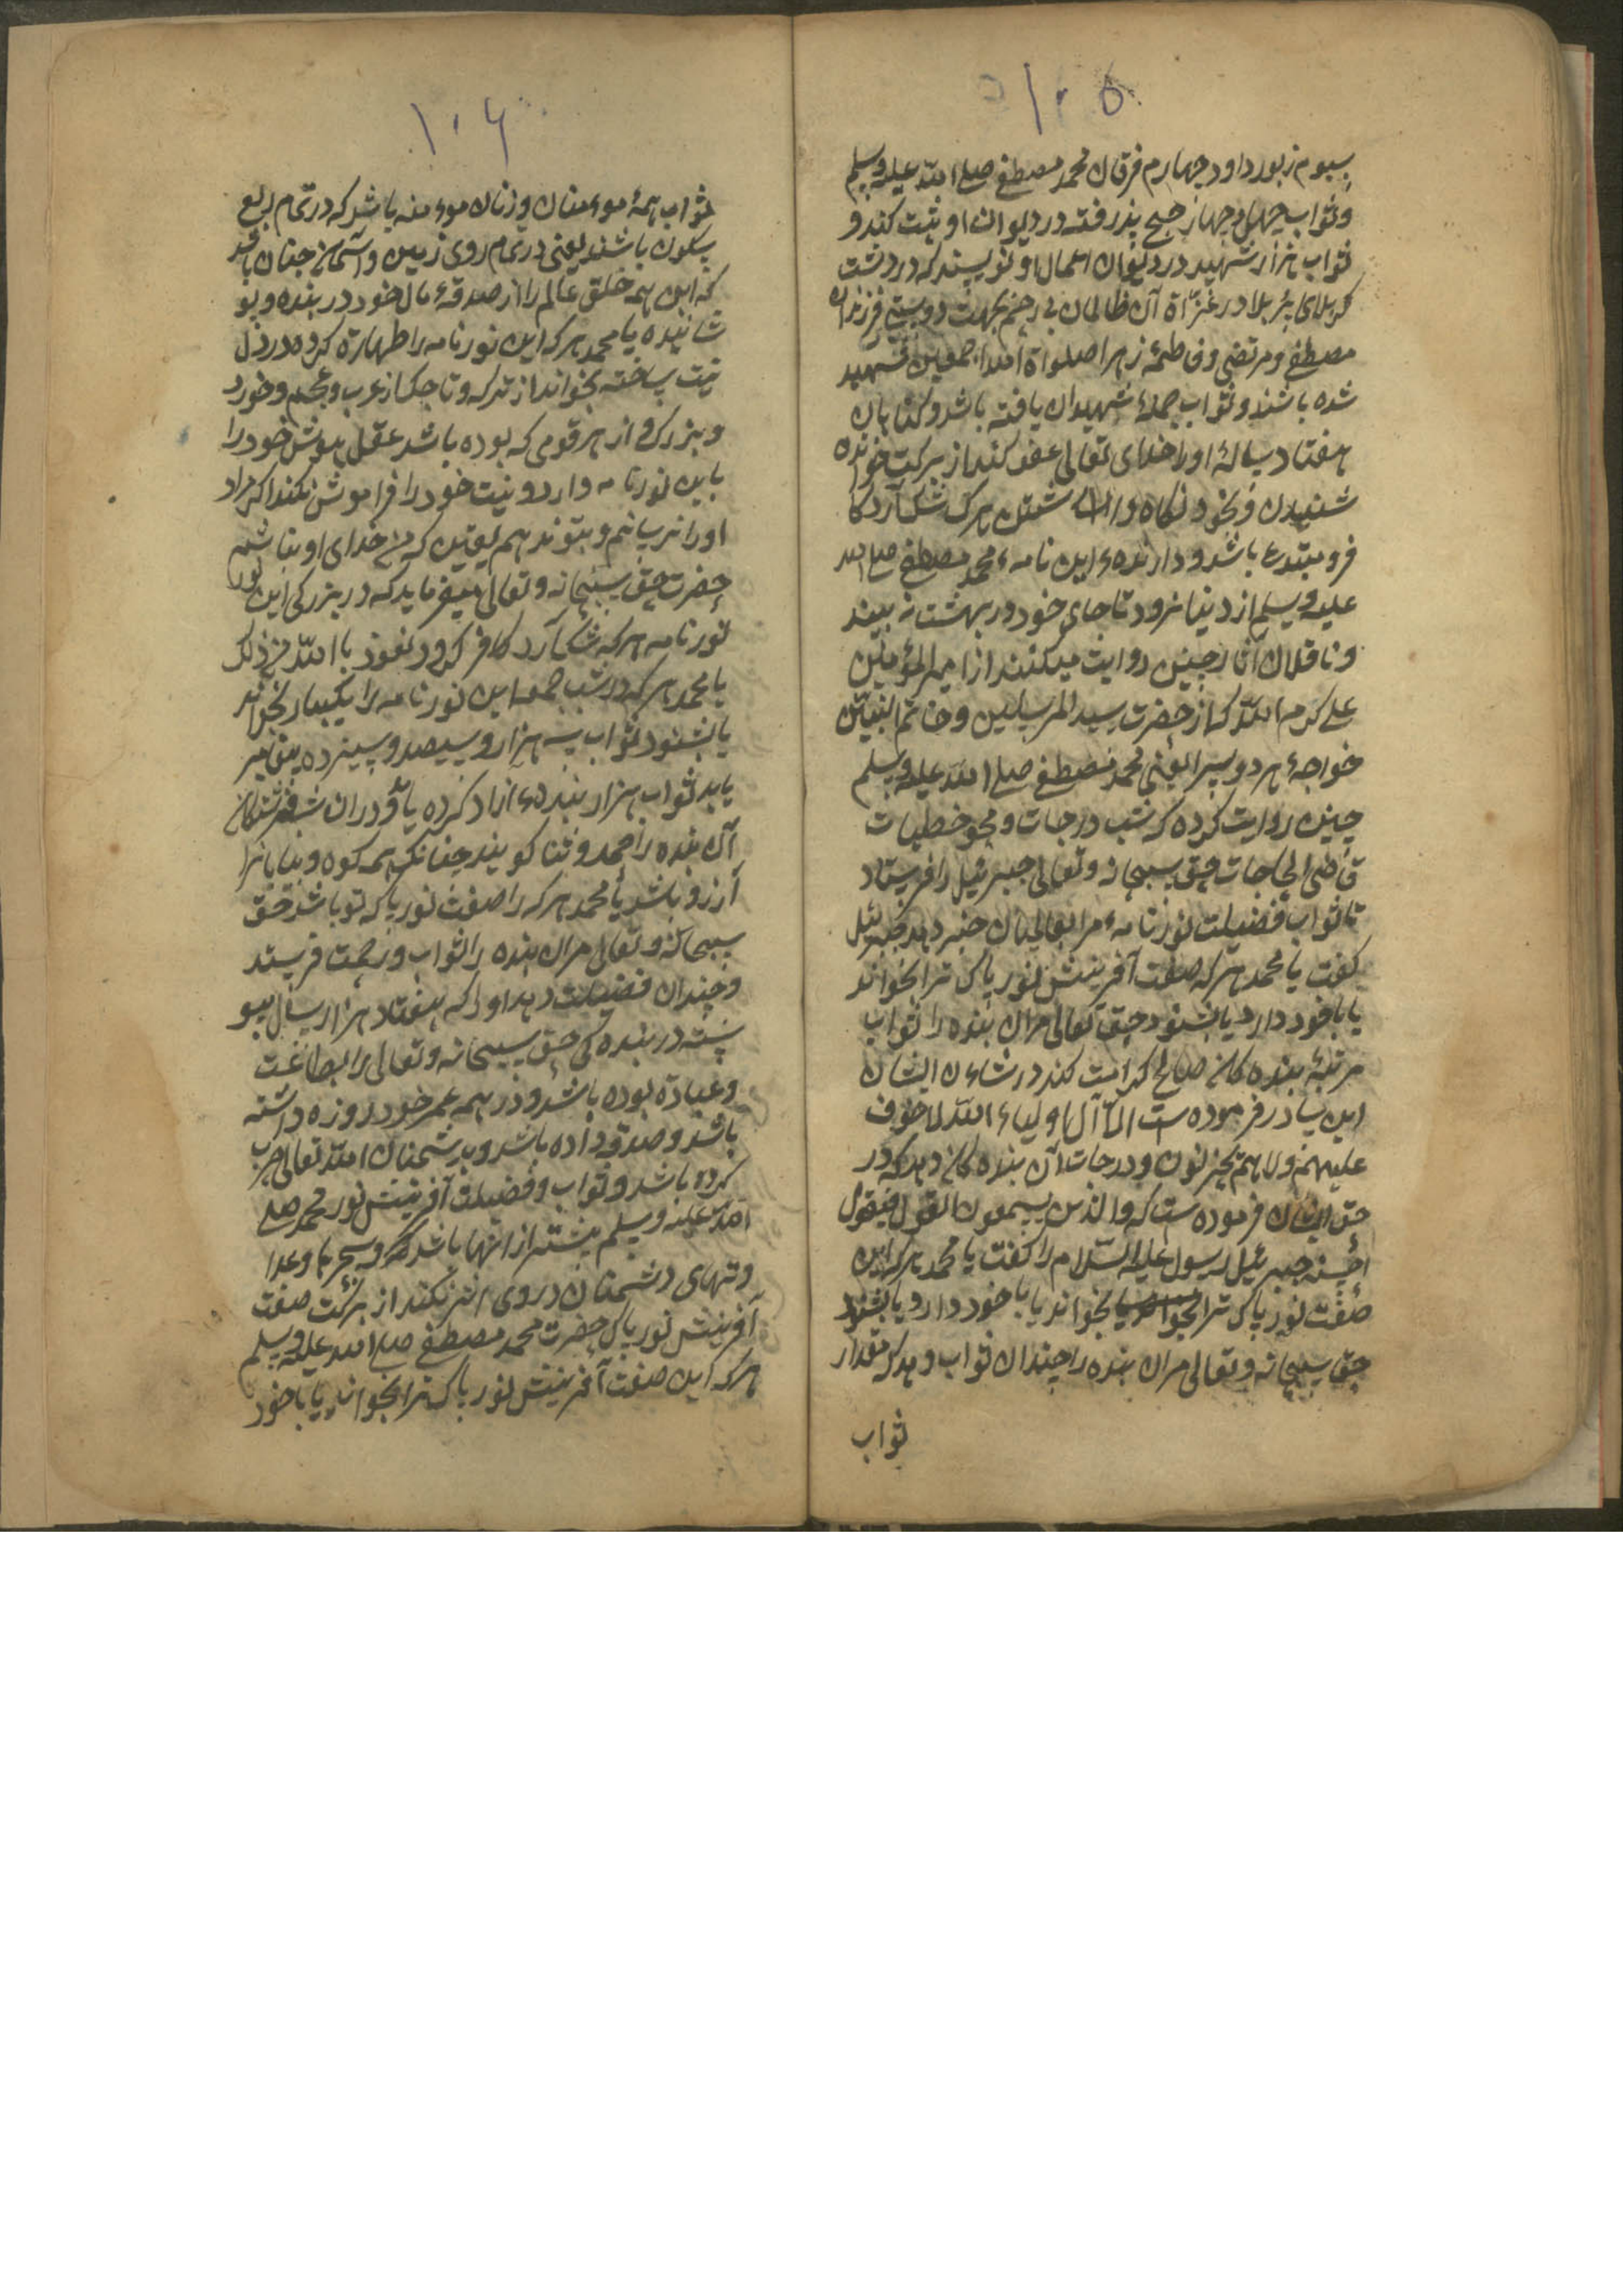 ۱۰۵
سیوم زبور داود چهارم فرقان محمد مصطفی صلی الله علیه وسلم
و ثواب چهل و چهار حج پذرفته در دیوان او ثبت کند و
ثواب هزار شهید در دیوان اعمال او نویسند که در دشت
کربلای پر بلا در غزاة آن ظالمان بی رحم بجهت دوستی فرزندان
مصطفی و مرتضی و فاطمهٔ زهرا صلواة الله اجمعین شهید
شده باشند و ثواب جملهٔ شهیدان یافته باشد و کناهان
هفتاد سالهٔ اورا خدای تعالی عفو کند از برکت خواندن
شنیدن و بخود نکاه داشتن هرک شک آرد کا
فر و مبتدع باشد و دارندهٔ این نامهٔ محمد مصطفی صلی الله
علیه وسلم از دنیا نرود تا جای خود در بهشت نه بیند
و ناقلان آثار چنین روایت میکنند از امیرالمؤمنین
علی کرم الله که از حضرت سید المرسلین و خاتم النبیین
خواجهٔ هر دو سرا یعنی محمد مصطفی صلی الله علیه وسلم
چنین روایت کرده که شب درجات و محو خطیات
قاضی الحاجات حق سبحانه و تعالی جبرئیل را فرستاد
تا ثواب فضیلت نور نامهٔ مر عالمیان خبر دهد جبرئیل
کفت یا محمد هر که صفت آفرینش نور پاک ترا بخواند
یا با خود دارد یا بشنود حق تعالی مران بنده را ثواب
مرتبهٔ بنده کان صالح کرامت کند در شاءن ایشان
این یاد فرموده ست الا آن اولیاء الله لا خوف
علیهم ولا هم یحزنون و درجات آن بنده کان دهد که در
حق ایشان فرموده ست که والذین یسمعون القول فیتبعون
احسنه جبرئیل رسول علیه السلام را کفت یا محمد هر که این
صفت نور پاک ترا بخواند یا با خود دارد یا بشنود
حق سبحانه و تعالی مران بنده را چندان ثواب دهد که مقدار
ثواب
۱۰۶
ثواب همهٔ موءمنان و زنان موءمنه باشد که در تمام ربع
مسکون باشند یعنی در تمام روی زمین و آسمان چنان باشد
که این همه خلق عالم را از صدقهٔ مال خود در بنده و پو
شانیده یا محمد هر که این نور نامه را طهارة کرده در دل
نیت ساخته بخواند از ترک و تاجک از عرب و عجم و خورد
و بزرک و از هر قومی که بوده باشد عقل هوش خود را
باین نور نامه دارد و نیت خود را فراموش نکند اکر مراد
اورا نرسانم و بتوندهم یقین که من خدای او نباشم
حضرت حق سبحانه و تعالی میفرماید که در بزرکی این نور
نور نامه هر که شک آرد کافر کردد نعوذ بالله من ذلک
یا محمد هر که در شب جمعه این نور نامه را یکبار بخواند
یا بشنود ثواب سه هزار و سیصد و سیزده پیغامبر
یابد ثواب هزار بندهٔ آزاد کرده یابد و دران شب فرشتکان
آن بنده را حمد و ثنا کویند چنانکه همه کوه و بیابانرا
آرزو باشد یا محمد هر که را صفت نور پاک تو باشد حق
سبحانه و تعالی مران بنده را ثواب و رحمت فرستد
و چندان فضیلت دهد اورا که هفتاد هزار سال پیو
سته در بنده کی حق سبحانه و تعالی را بطاعت
و عبادة بوده باشد و در همه عمر خود روزه داشته
باشد و صدقه داده باشد و بدشمنان الله تعالی حرب
کرده باشد و ثواب و فضیلت آفرینش نور محمد صلی
الله علیه وسلم بیشتر از انها باشد و سحرها و عدا
وتهای دشمنان در وی اثر نکند از برکت صفت
آفرینش نور پاک حضرت محمد مصطفی صلی الله علیه وسلم
هر که این صفت آفرینش نور پاک ترا بخواند یا با خود